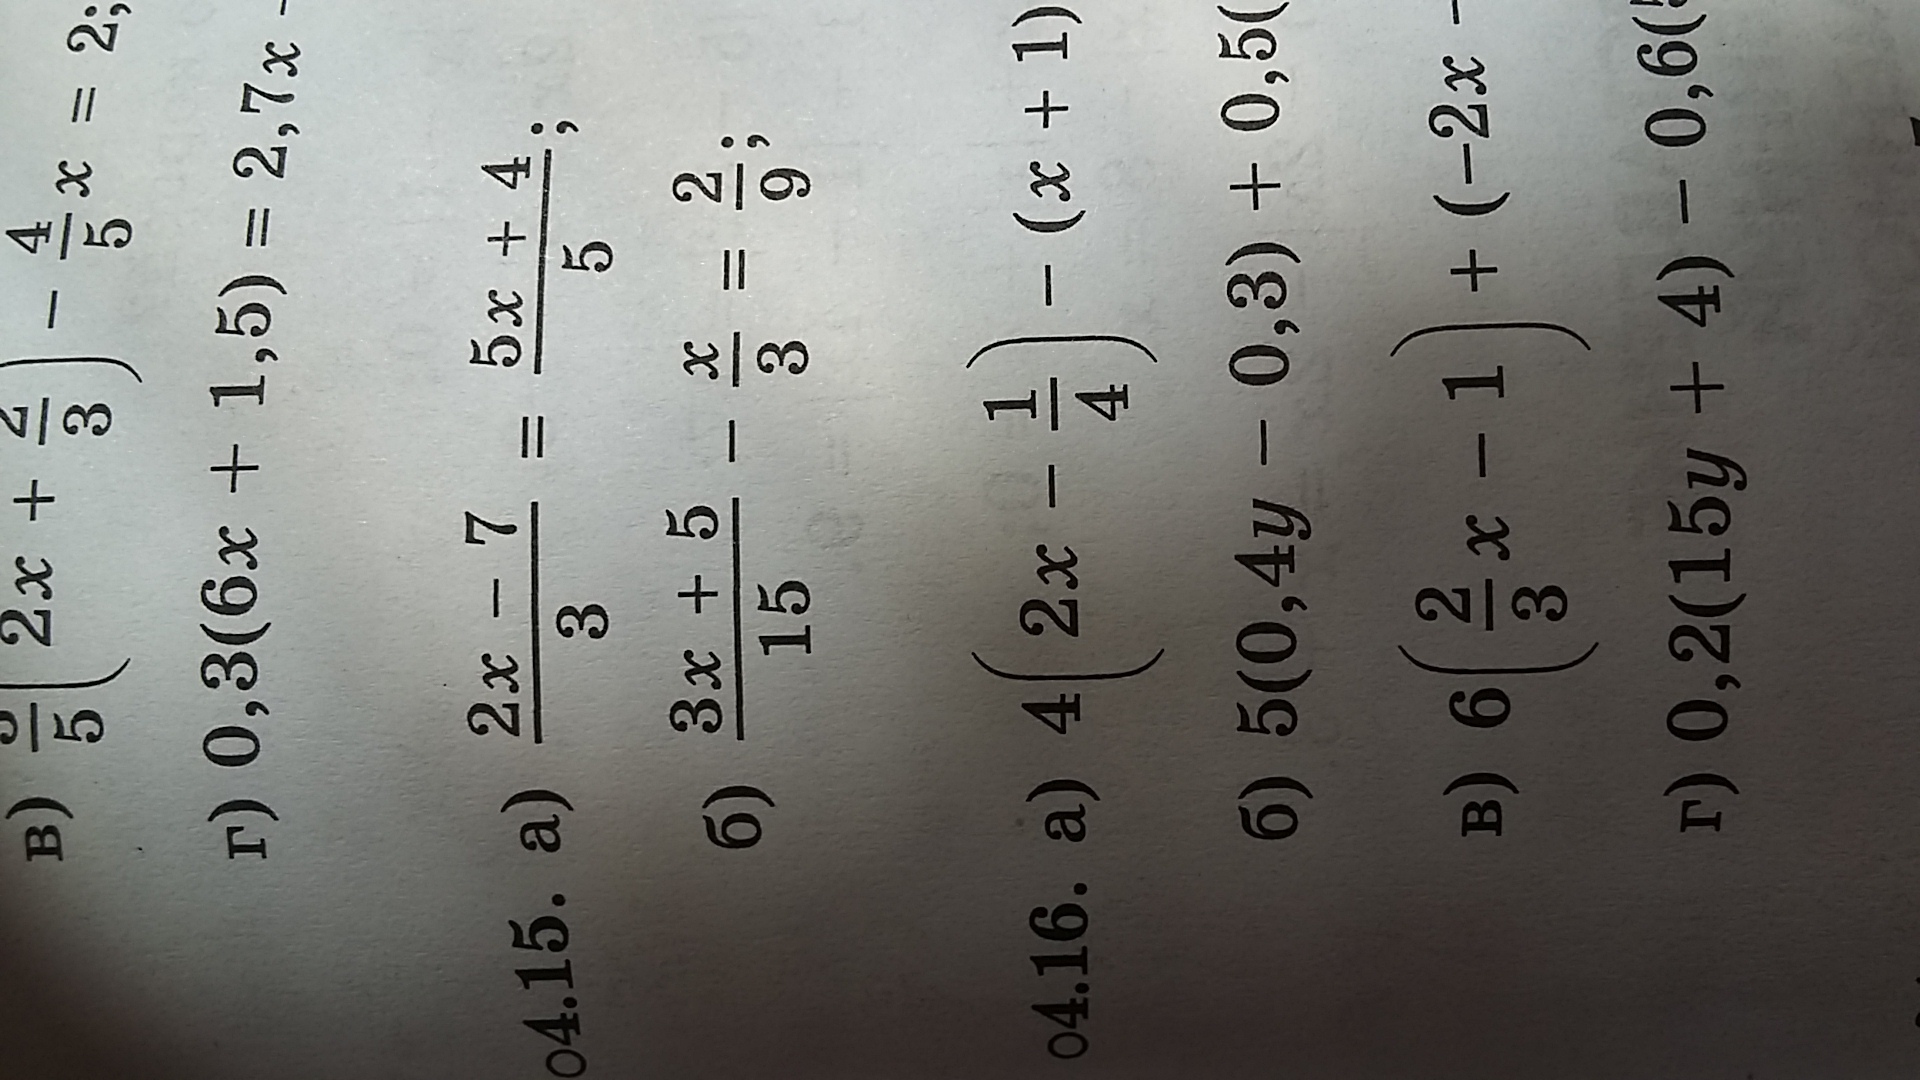 в) /5 (2x + 2/3) − 4/5 x = 2;
г) 0,3(6x + 1,5) = 2,7x −
○4.15. а) (2x − 7)/3 = (5x + 4)/5;
б) (3x + 5)/15 − x/3 = 2/9;
○4.16. а) 4(2x − 1/4) − (x + 1)
б) 5(0,4y − 0,3) + 0,5(
в) 6(2/3 x − 1) + (−2x −
г) 0,2(15y + 4) − 0,6(